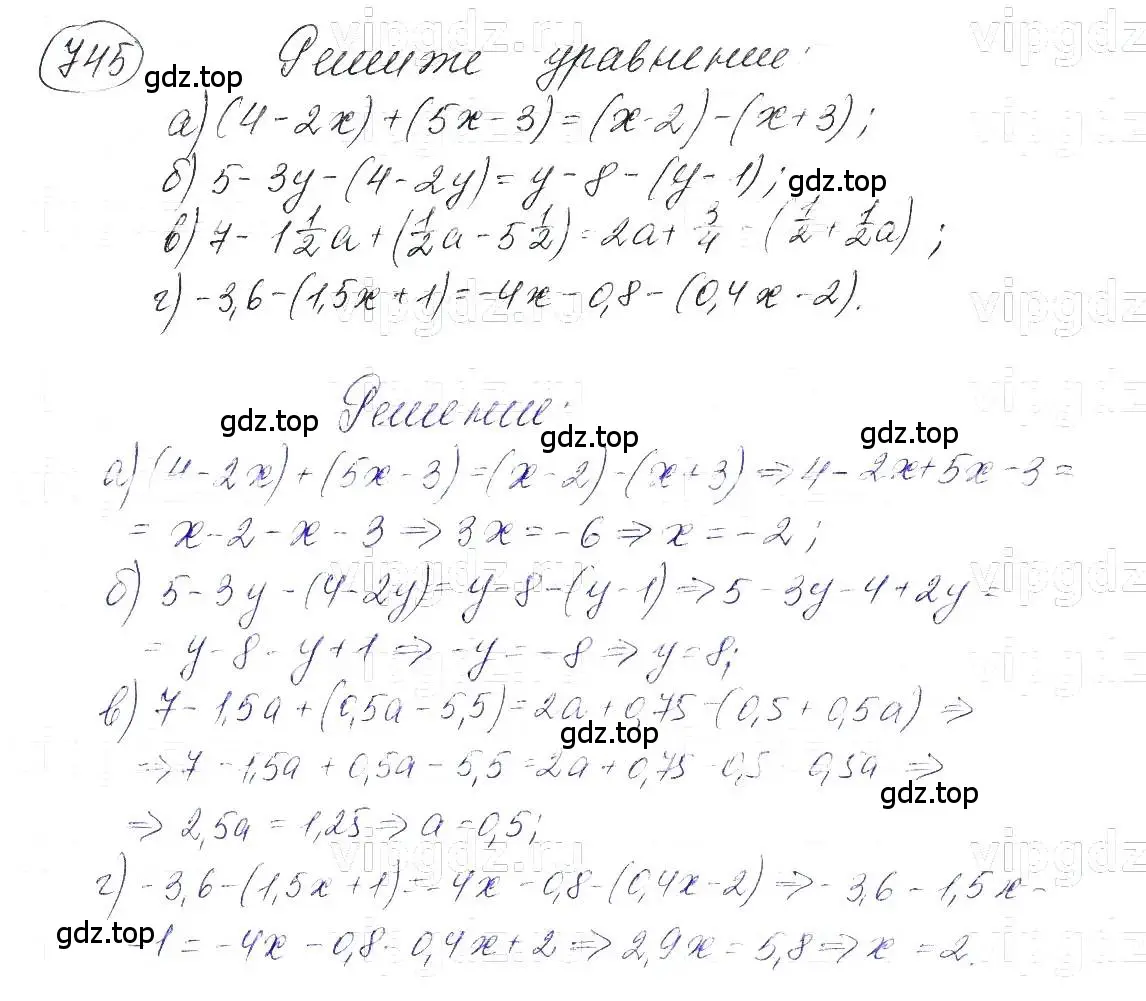 745 Решите уравнение:
а) (4 - 2x) + (5x - 3) = (x - 2) - (x + 3);
б) 5 - 3y - (4 - 2y) = y - 8 - (y - 1);
в) 7 - 1 1/2 a + (1/2 a - 5 1/2) = 2a + 3/4 - (1/2 + 1/2 a);
г) -3,6 - (1,5x + 1) = -4x - 0,8 - (0,4x - 2).
Решение:
а) (4 - 2x) + (5x - 3) = (x - 2) - (x + 3) ⇒ 4 - 2x + 5x - 3 =
= x - 2 - x - 3 ⇒ 3x = -6 ⇒ x = -2;
б) 5 - 3y - (4 - 2y) = y - 8 - (y - 1) ⇒ 5 - 3y - 4 + 2y =
= y - 8 - y + 1 ⇒ -y = -8 ⇒ y = 8;
в) 7 - 1,5a + (0,5a - 5,5) = 2a + 0,75 - (0,5 + 0,5a) ⇒
⇒ 7 - 1,5a + 0,5a - 5,5 = 2a + 0,75 - 0,5 - 0,5a ⇒
⇒ 2,5a = 1,25 ⇒ a = 0,5;
г) -3,6 - (1,5x + 1) = -4x - 0,8 - (0,4x - 2) ⇒ -3,6 - 1,5x -
- 1 = -4x - 0,8 - 0,4x + 2 ⇒ 2,9x = 5,8 ⇒ x = 2.
gdz.top
gdz.top
gdz.top
gdz.top
gdz.top
gdz.top
gdz.top
gdz.top
vipgdz.ru
vipgdz.ru
vipgdz.ru
vipgdz.ru
vipgdz
vipgdz
vipgdz
vipgdz
vipgdz